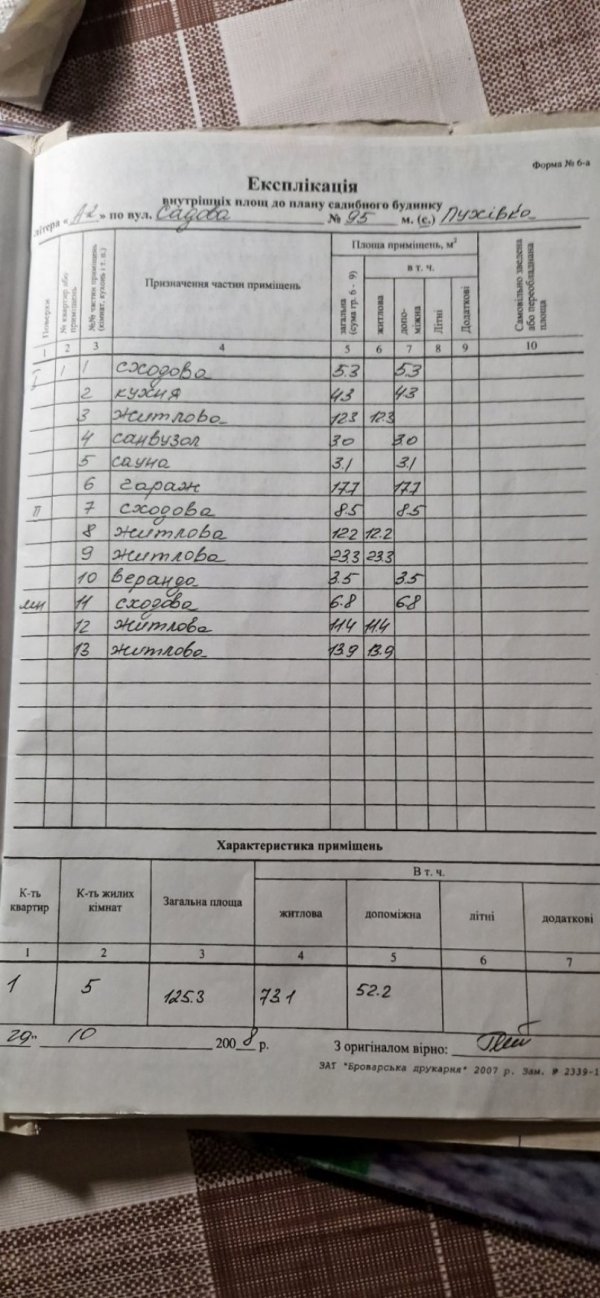 Форма № 6-а
Експлікація
внутрішніх площ до плану садибного будинку
літера « А2 » по вул. Садова № 95 м. (с.) Пухівка
Поверхи
№ квартир або приміщень
№№ частин приміщень (кімнат, кухонь і т. п.)
Призначення частин приміщень
Площа приміщень, м²
загальна (сума гр. 6 - 9)
в т. ч.
житлова
допоміжна
Літні
Додаткові
Самовільно зведена або переобладнана площа
1 2 3 4 5 6 7 8 9 10
I 1 1 сходова 5.3 5.3
2 кухня 4.3 4.3
3 житлова 12.3 12.3
4 санвузол 3.0 3.0
5 сауна 3.1 3.1
6 гараж 17.7 17.7
II 7 сходова 8.5 8.5
8 житлова 12.2 12.2
9 житлова 23.3 23.3
10 веранда 3.5 3.5
ман 11 сходова 6.8 6.8
12 житлова 11.4 11.4
13 житлова 13.9 13.9
Характеристика приміщень
К-ть квартир
К-ть жилих кімнат
Загальна площа
В т. ч.
житлова
допоміжна
літні
додаткові
1 2 3 4 5 6 7
1 5 125.3 73.1 52.2
29 10 2008 р. З оригіналом вірно:
ЗАТ "Броварська друкарня" 2007 р. Зам. № 2339-1